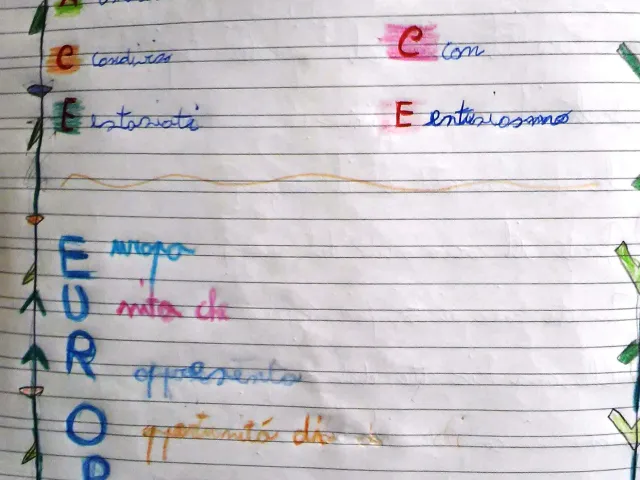 C condiviso C con
E estasiati E entusiasmo
E uropa
U nita che
R appresenta
O pportunità di
P